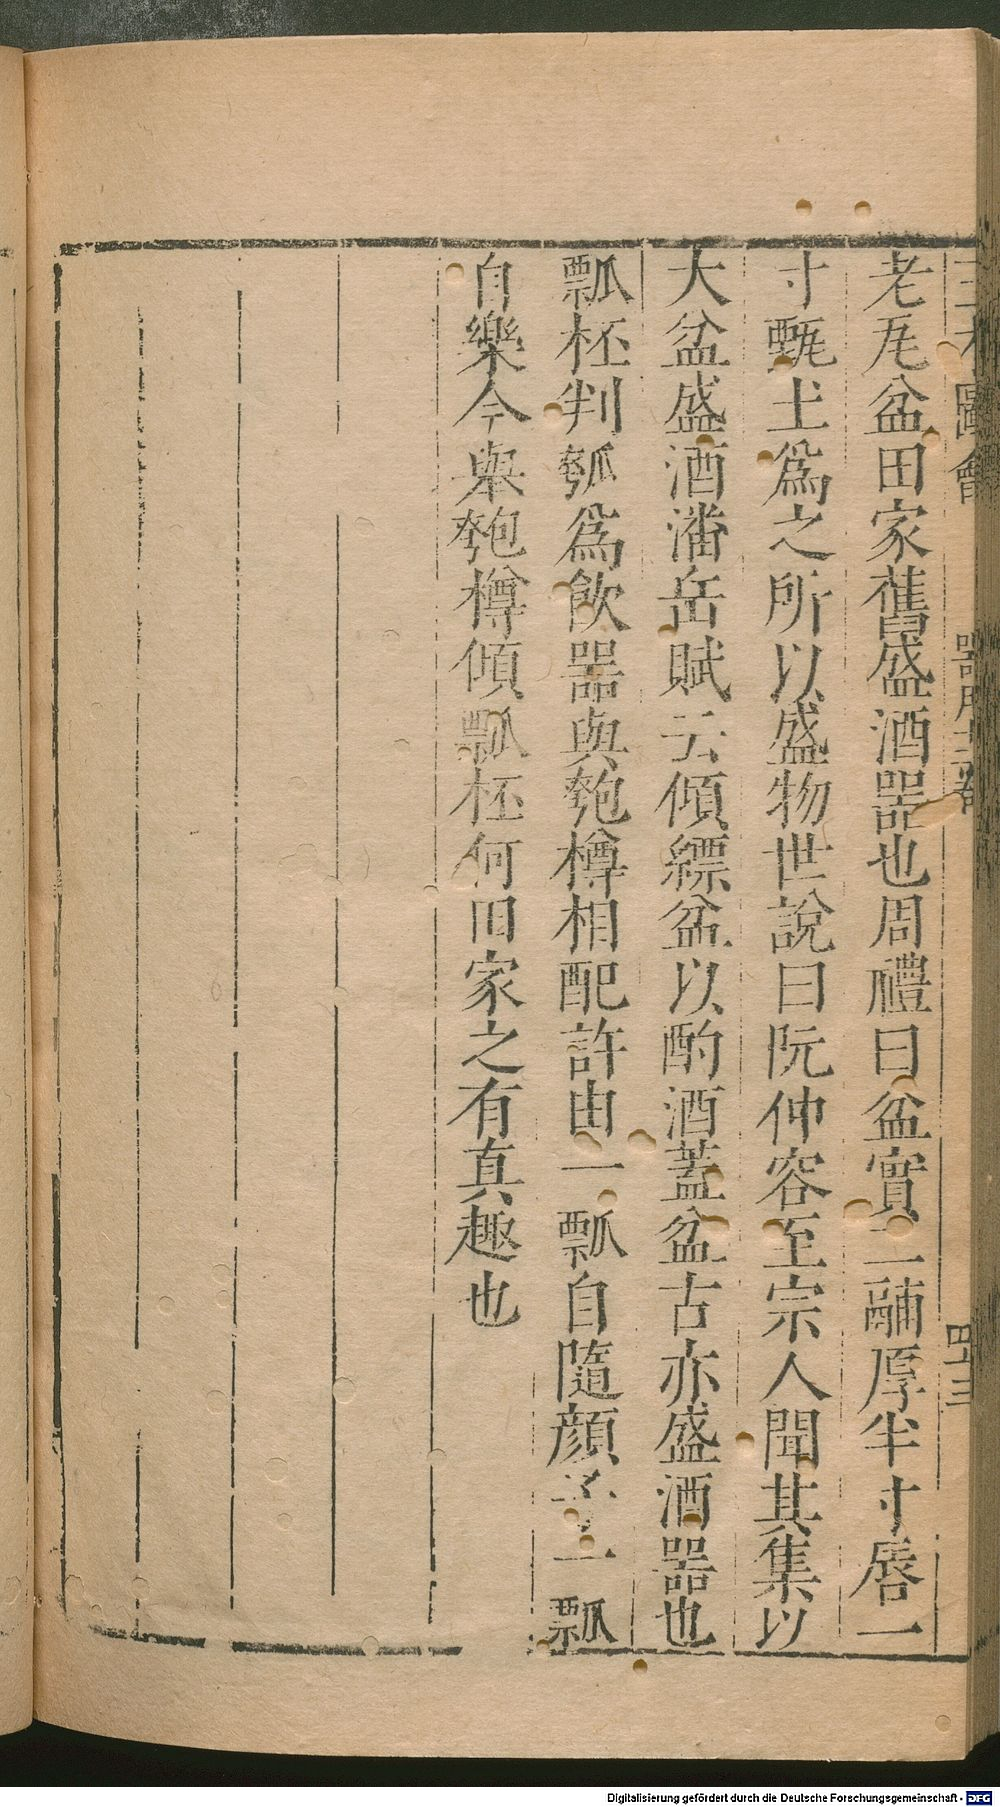 老瓦盆田家舊盛酒器也周禮曰盆實二鬴厚半寸唇一
寸甄土爲之所以盛物世說曰阮仲容至宗人聞其集以
大盆盛酒潘岳賦云傾縹盆以酌酒蓋盆古亦盛酒器也
瓢柸判瓠爲飲器與匏樽相配許由一瓢自隨顔子一瓢
自樂今舉匏樽傾瓢柸何田家之有真趣也
三才圖會
器用十二卷
四三
Digitalisierung gefördert durch die Deutsche Forschungsgemeinschaft - DFG